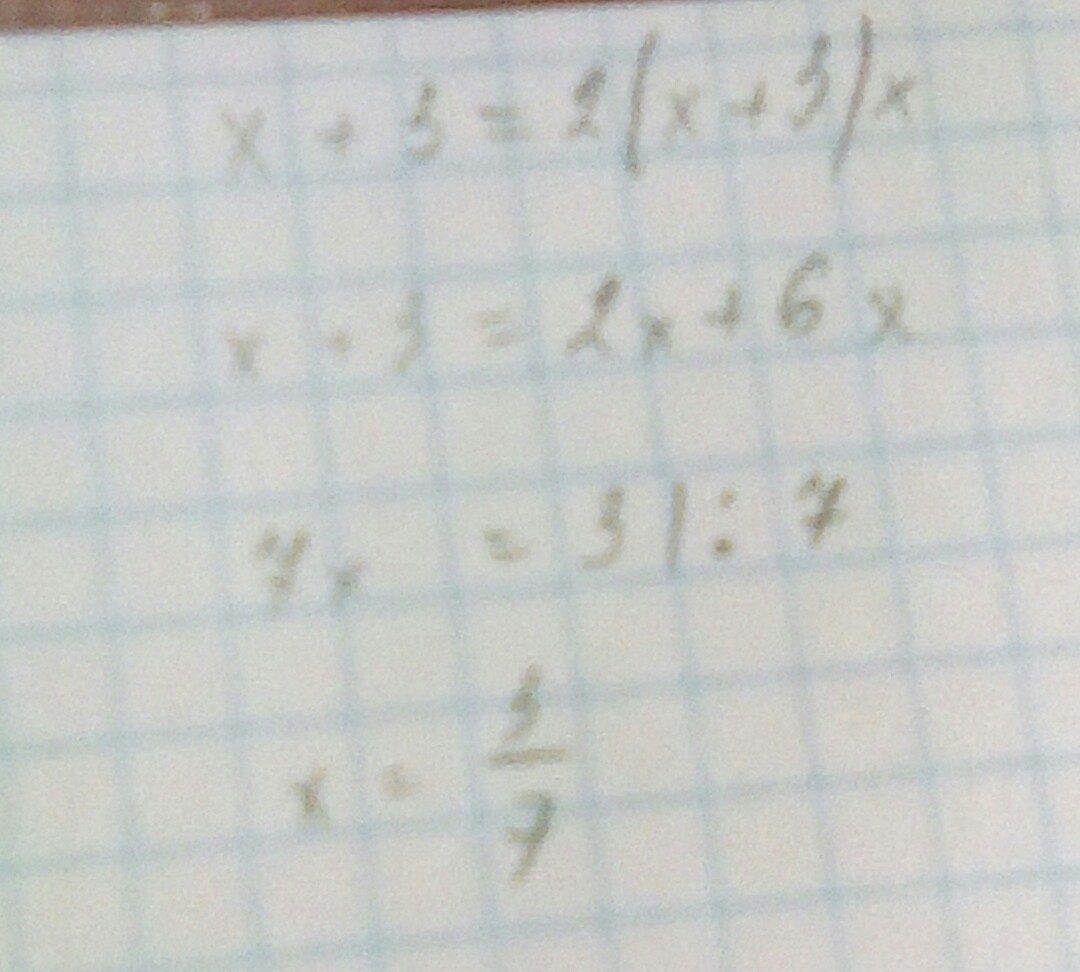 x + 3 = 2(x+3)x
x + 3 = 2x + 6x
7x = 3 | : 7
x = 3/7